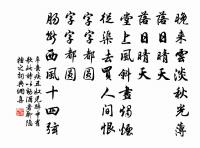 晚來雲淡秋光薄
落日晴天
落日晴天
堂上風斜畫燭煙
從渠去買人間恨
字字都圓
字字都圓
腸斷西風十四弦